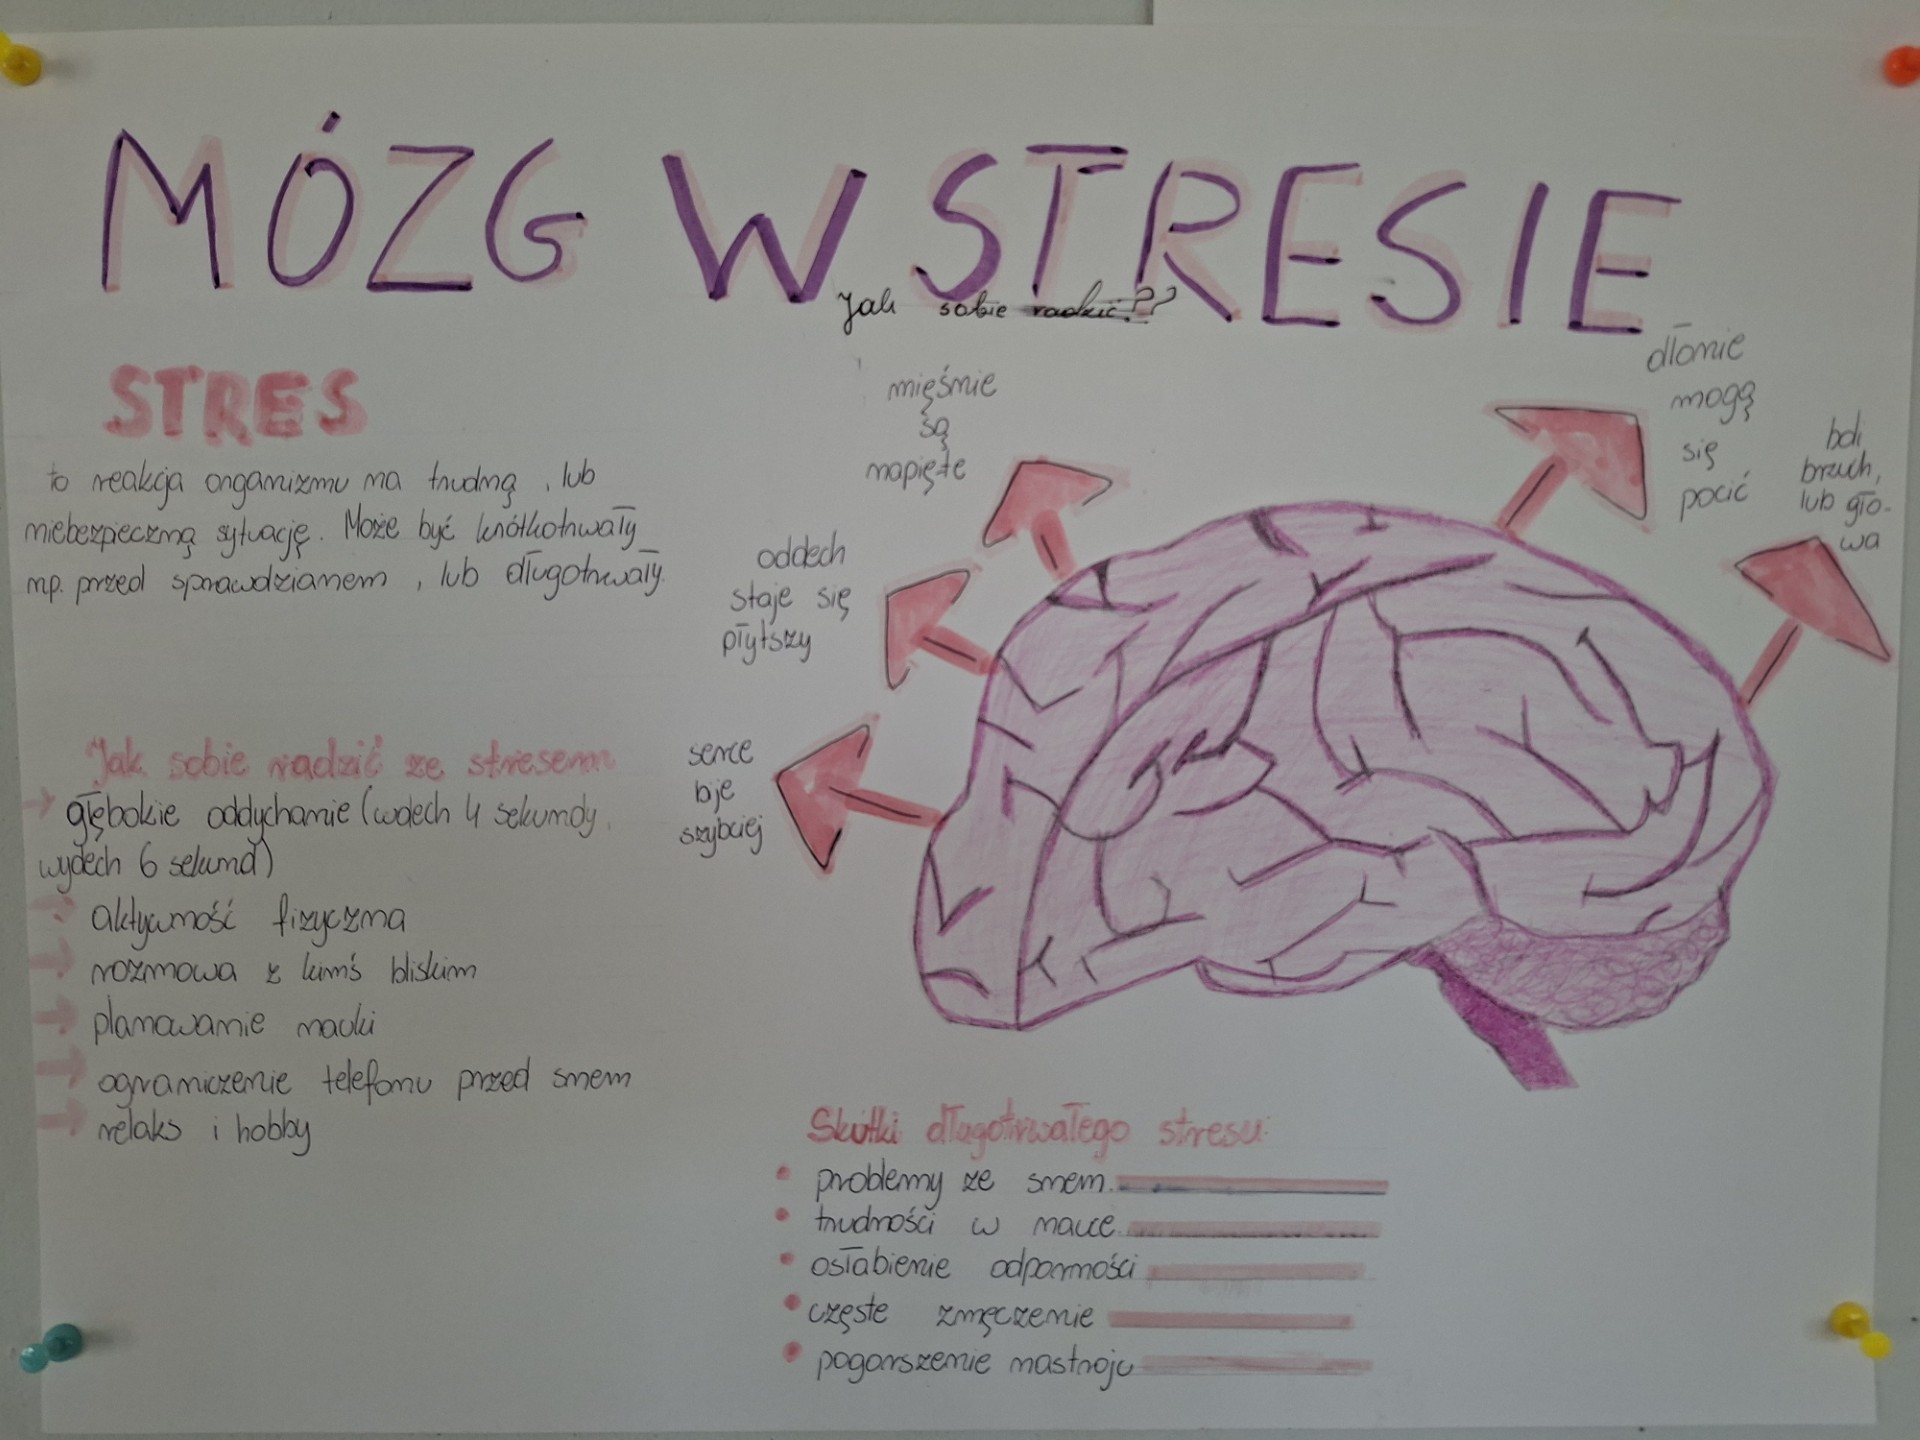 MÓZG W STRESIE
Jak sobie radzić??
STRES
to reakcja organizmu na trudną, lub
niebezpieczną sytuację. Może być krótkotrwały
np. przed sprawdzianem, lub długotrwały.
Jak sobie radzić ze stresem
głębokie oddychanie (wdech 4 sekundy,
wydech 6 sekund)
aktywność fizyczna
rozmowa z kimś bliskim
planowanie nauki
ograniczenie telefonu przed snem
relaks i hobby
mięśnie
są
napięte
oddech
staje się
płytszy
serce
bije
szybciej
dłonie
mogą
się
pocić
boli
brzuch,
lub gło-
wa
Skutki długotrwałego stresu:
problemy ze snem
trudności w nauce
osłabienie odporności
częste zmęczenie
pogorszenie nastroju